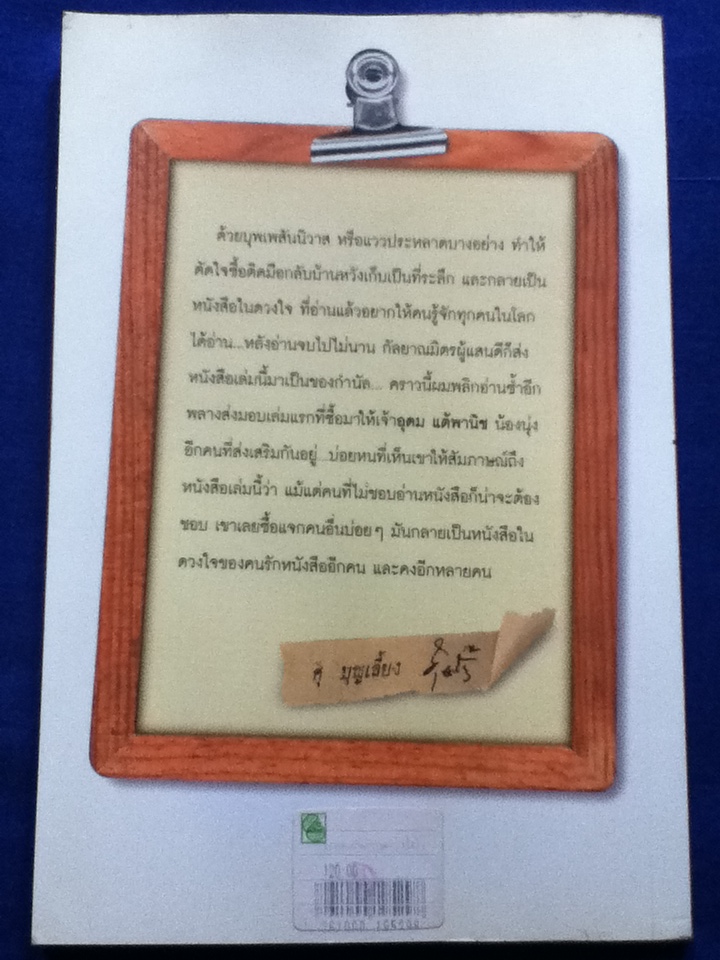 ด้วยบุพเพสันนิวาส หรือแววประหลาดบางอย่าง ทำให้
ตัดใจซื้อติดมือกลับบ้านหวังเก็บเป็นที่ระลึก และกลายเป็น
หนังสือในดวงใจ ที่อ่านแล้วอยากให้คนรู้จักทุกคนในโลก
ได้อ่าน...หลังอ่านจบไปไม่นาน กัลยาณมิตรผู้แสนดีก็ส่ง
หนังสือเล่มนี้มาเป็นของกำนัล... คราวนี้ผมพลิกอ่านซ้ำอีก
พลางส่งมอบเล่มแรกที่ซื้อมาให้เจ้าอุดม แต้พานิช น้องนุ่ง
อีกคนที่ส่งเสริมกันอยู่...บ่อยหนที่เห็นเขาให้สัมภาษณ์ถึง
หนังสือเล่มนี้ว่า แม้แต่คนที่ไม่ชอบอ่านหนังสือก็น่าจะต้อง
ชอบ เขาเลยซื้อแจกคนอื่นบ่อยๆ มันกลายเป็นหนังสือใน
ดวงใจของคนรักหนังสืออีกคน และคงอีกหลายคน
จุ้ บุญเลี้ยง
120.00